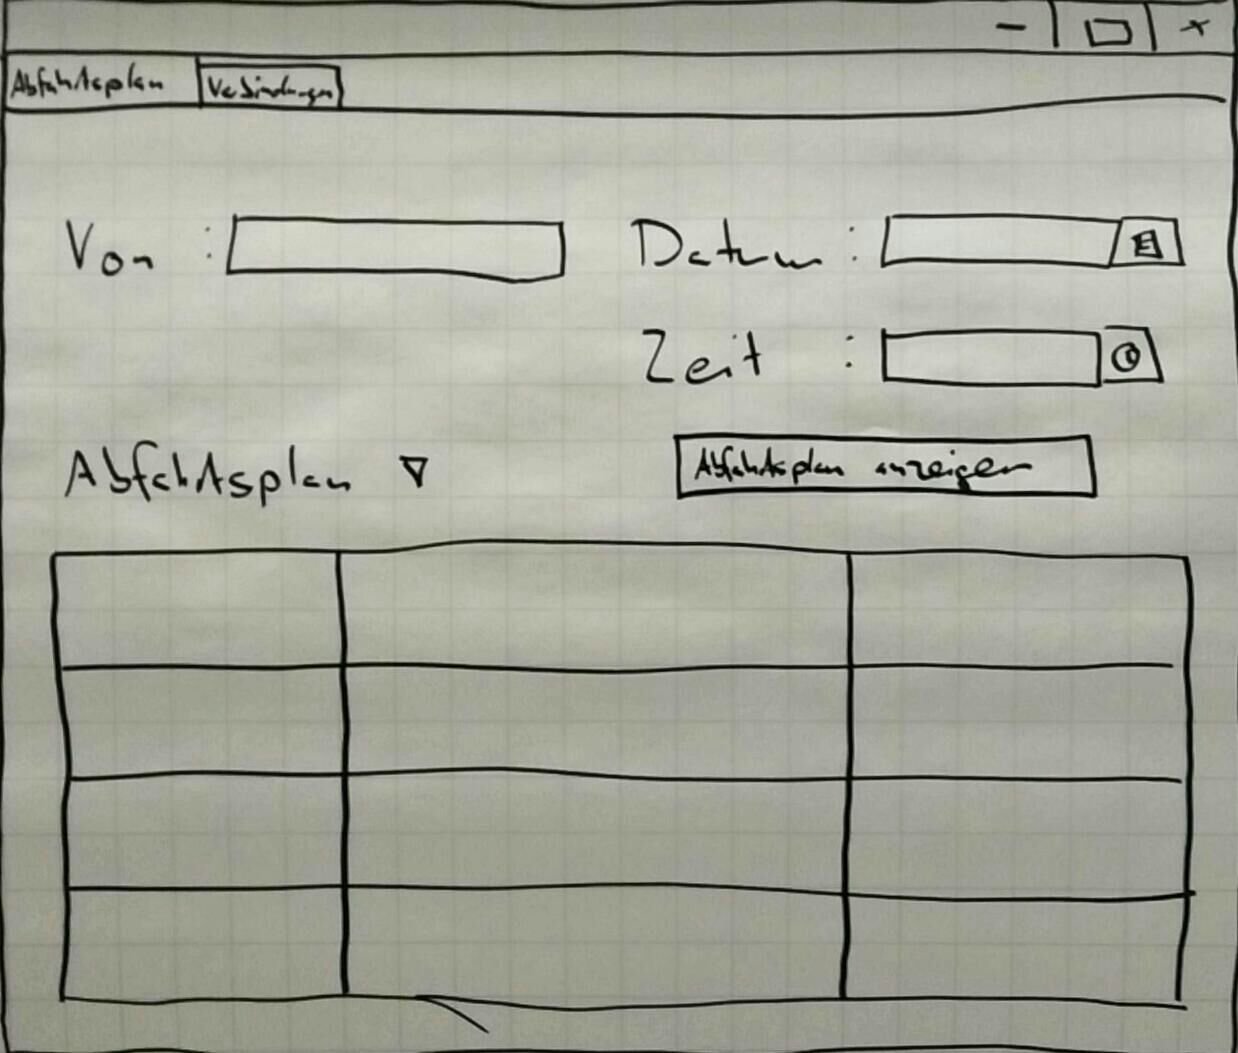 Abfahrtsplan Verbindungen
Von : Datum :
Zeit :
Abfahrtsplan Abfahrtsplan anzeigen